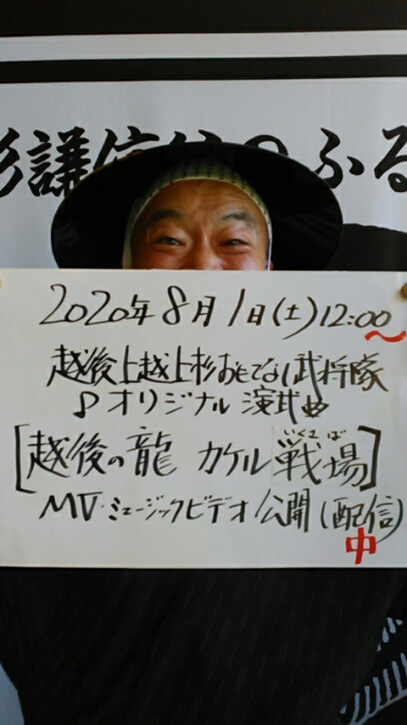 杉謙信公のふる
2020年8月1日(土)12:00〜
越後上越上杉おもてなし武将隊
♪オリジナル演武曲
[越後の龍 カケル戦場]
いくさば
MV・ミュージックビデオ公開(配信)
中